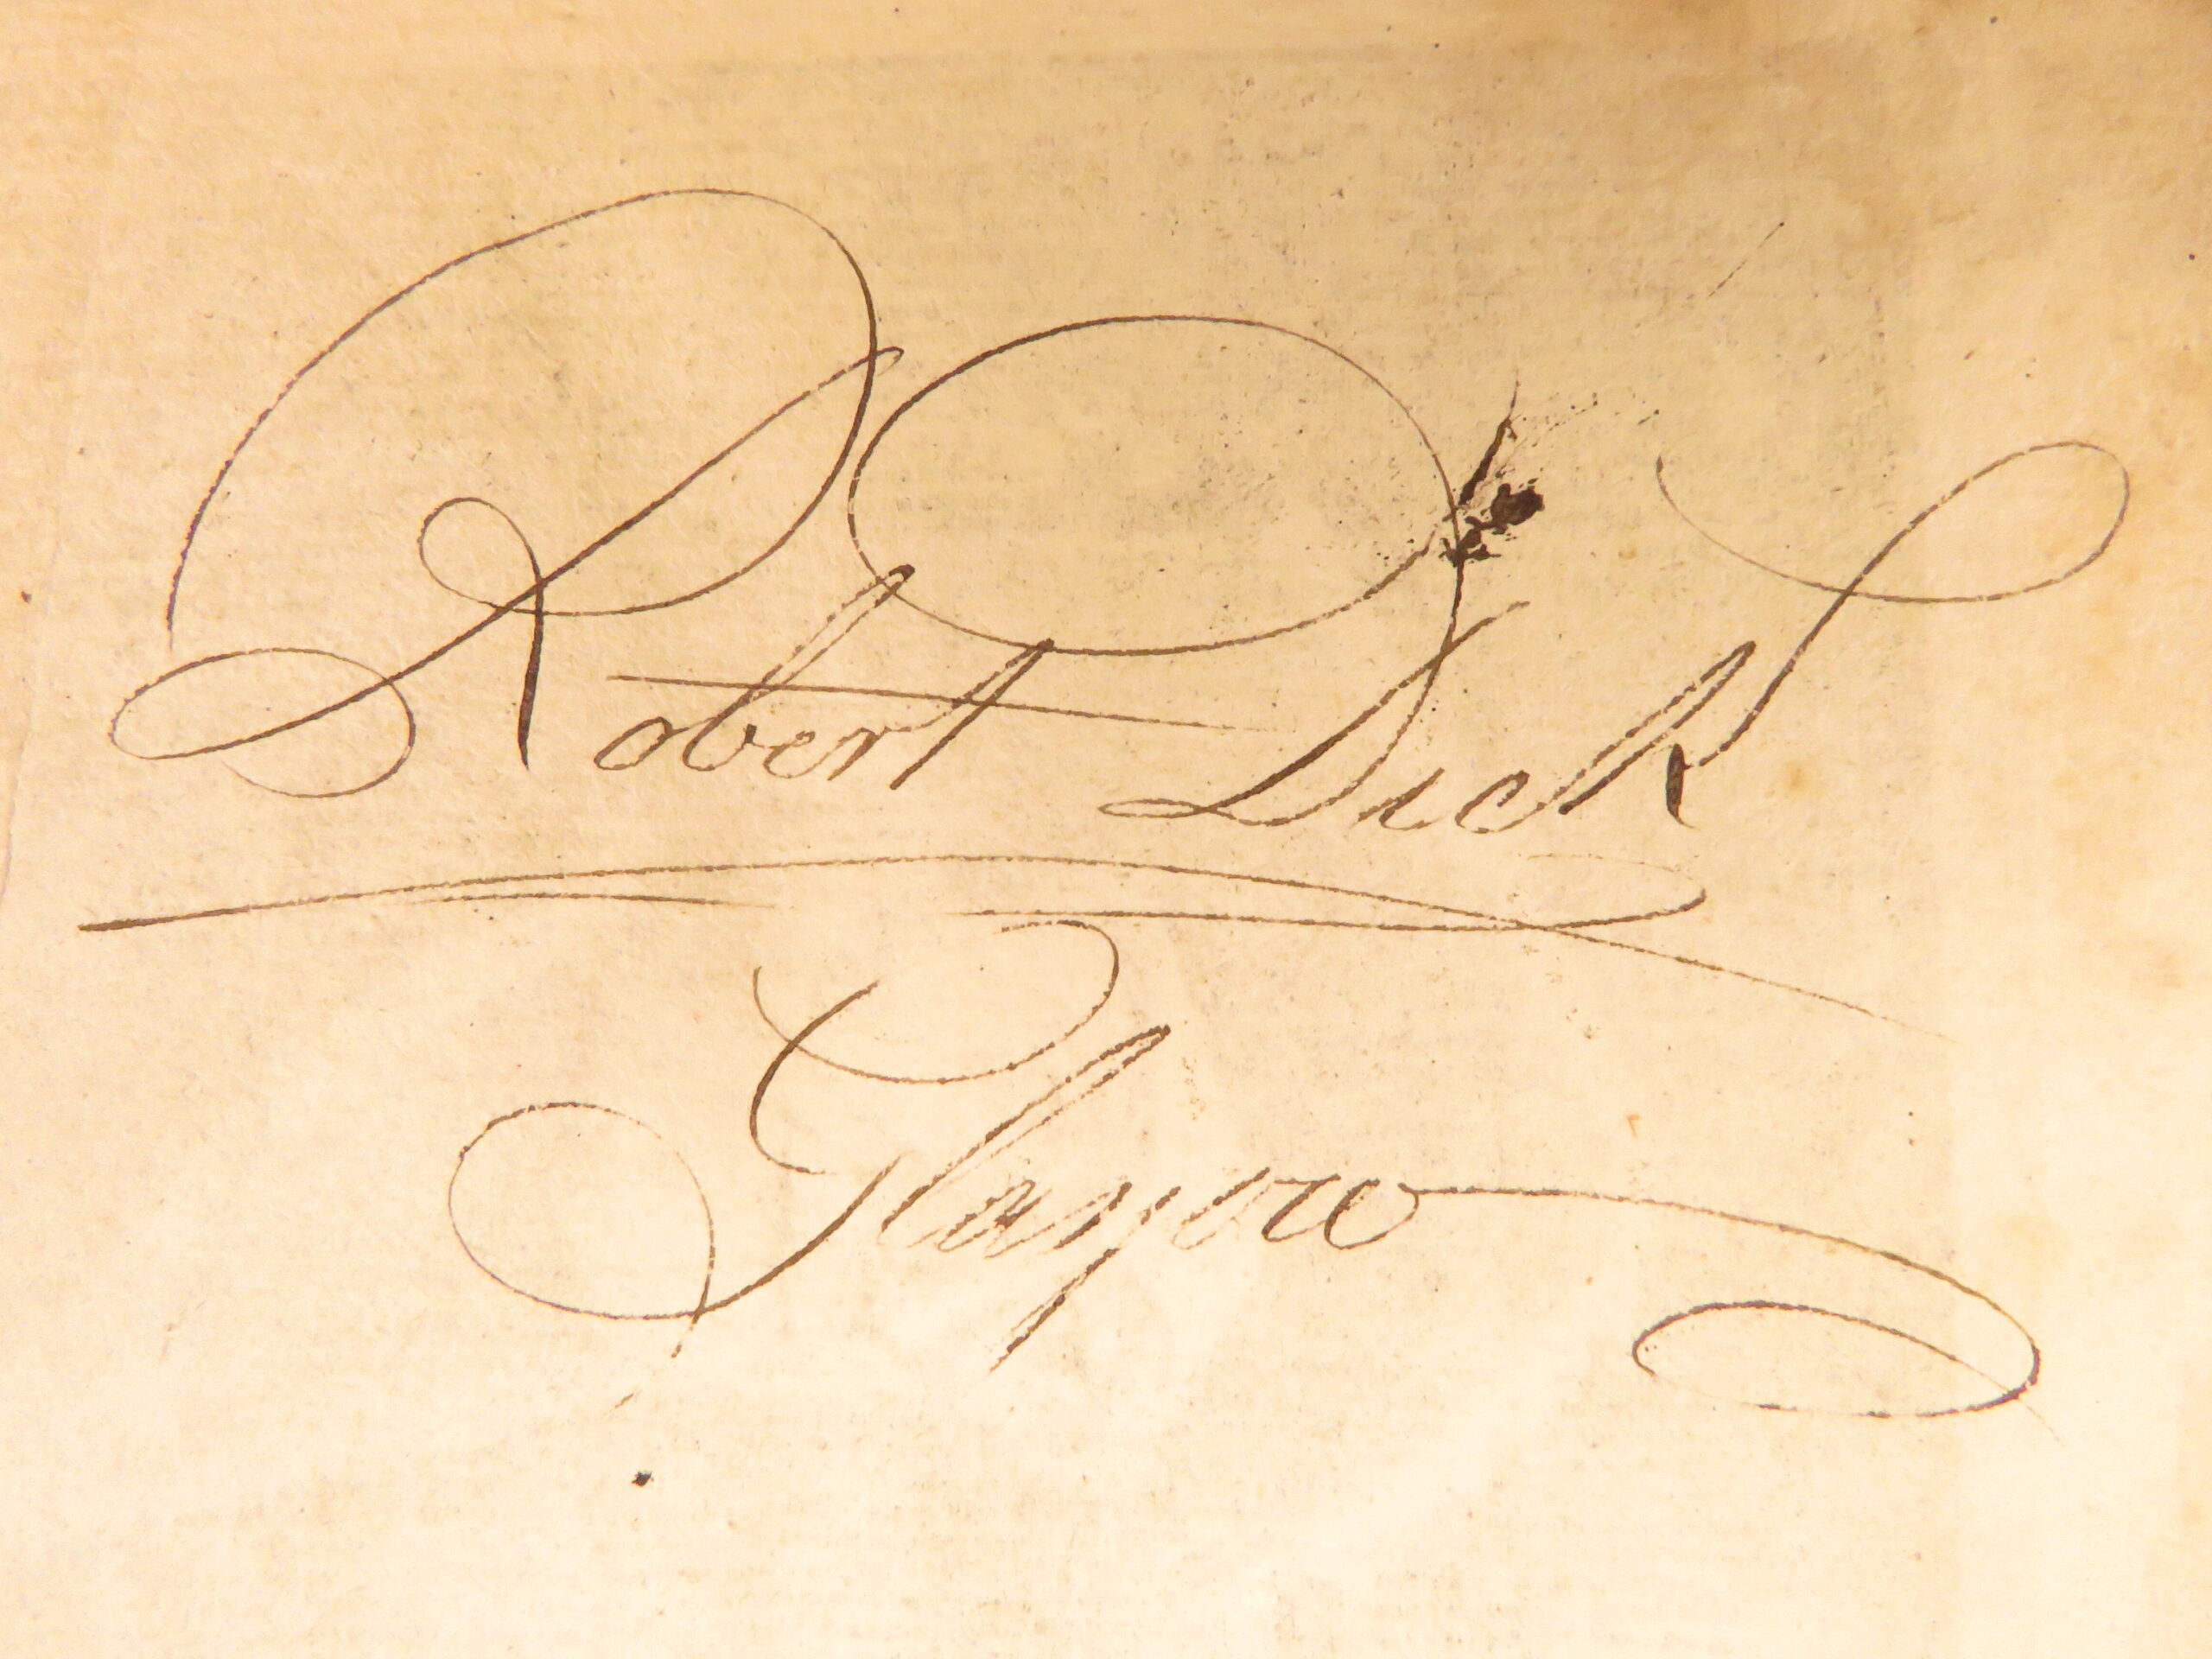 Robert Dick
Glasgow